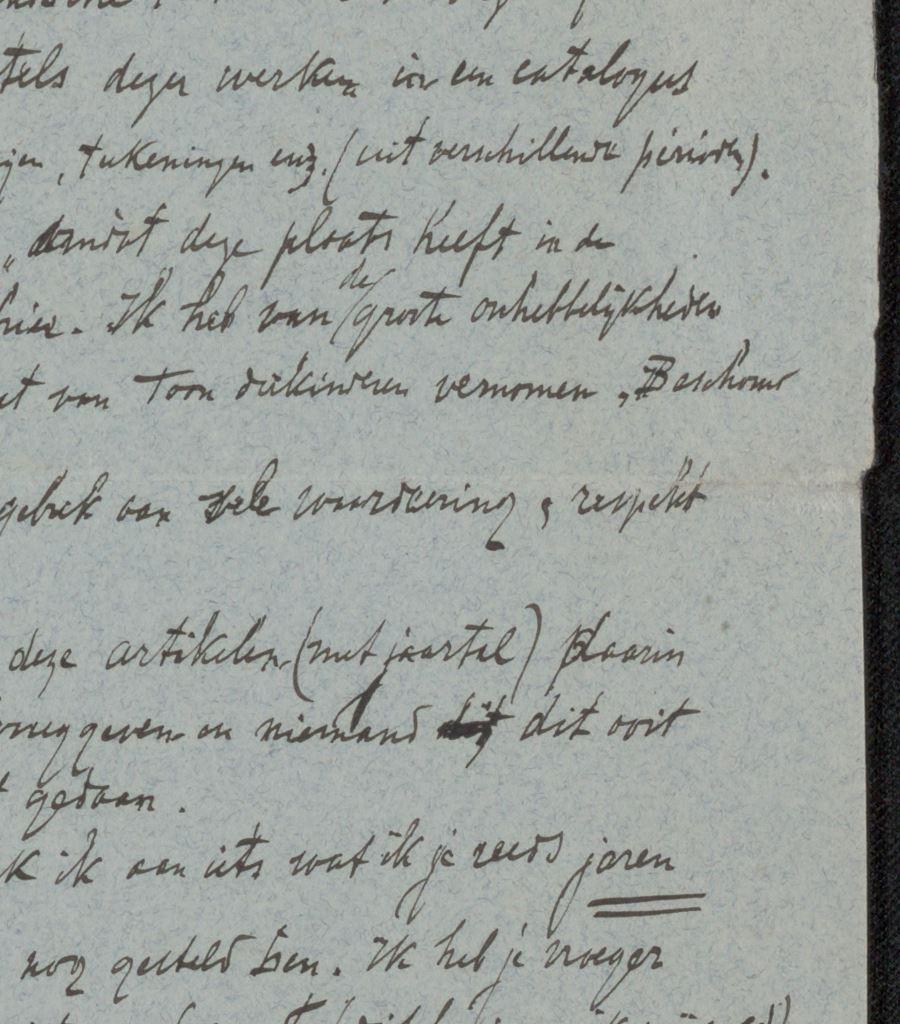 tels dezer werken in een catalogus
gen, tekeningen enz. (uit verschillende perioden).
„ omdat deze plaats heeft in de
hier. Ik heb van de groote onhebbelijkheden
van Toon dekinderen vernomen „Beschouw
gebrek aan vele waardeering & respekt
deze artikelen (met jaartal) daarin
en niemand dit ooit
gedaan.
k ik aan iets wat ik je reeds jaren
nog gesteld ben. Ik heb je vroeger